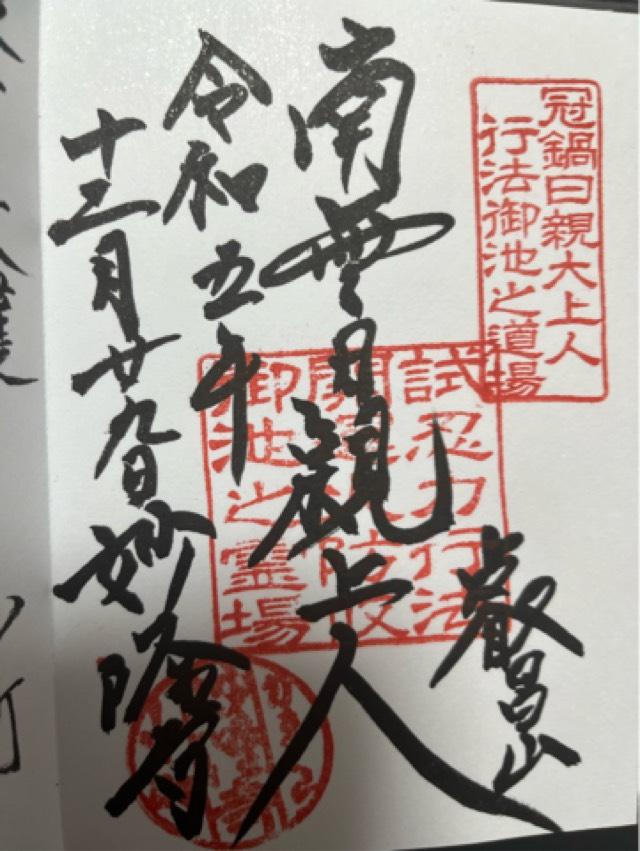 冠鍋日親大上人
行法御池之道場
叡昌山
試忍力行法
南無日親上人
御池之霊場
令和五年
十二月廿九日 妙隆寺